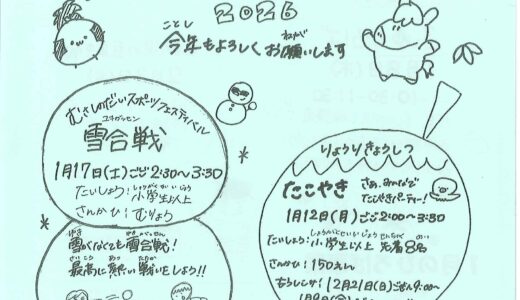 2026
ことし ねが
今年もよろしくお願いします
むさしのだいスポーツフェスティバル
ユキガッセン
雪合戦
1月17日(土)ごご2:30~3:30
しょうがくせいいじょう
たいしょう:小学生以上
さんかひ:むりょう
雪がなくても雪合戦!
さいこう あつ たたか
最高に熱い戦いをしよう!!
りょうりきょうしつ
たこやき
さぁ、みんなで
たこやきパーティー!
1月12日(月)ごご2:00~3:30
たいしょう:小学生以上 先着8名
さんかひ:150えん
12月21日(日)ごぜん9:00~